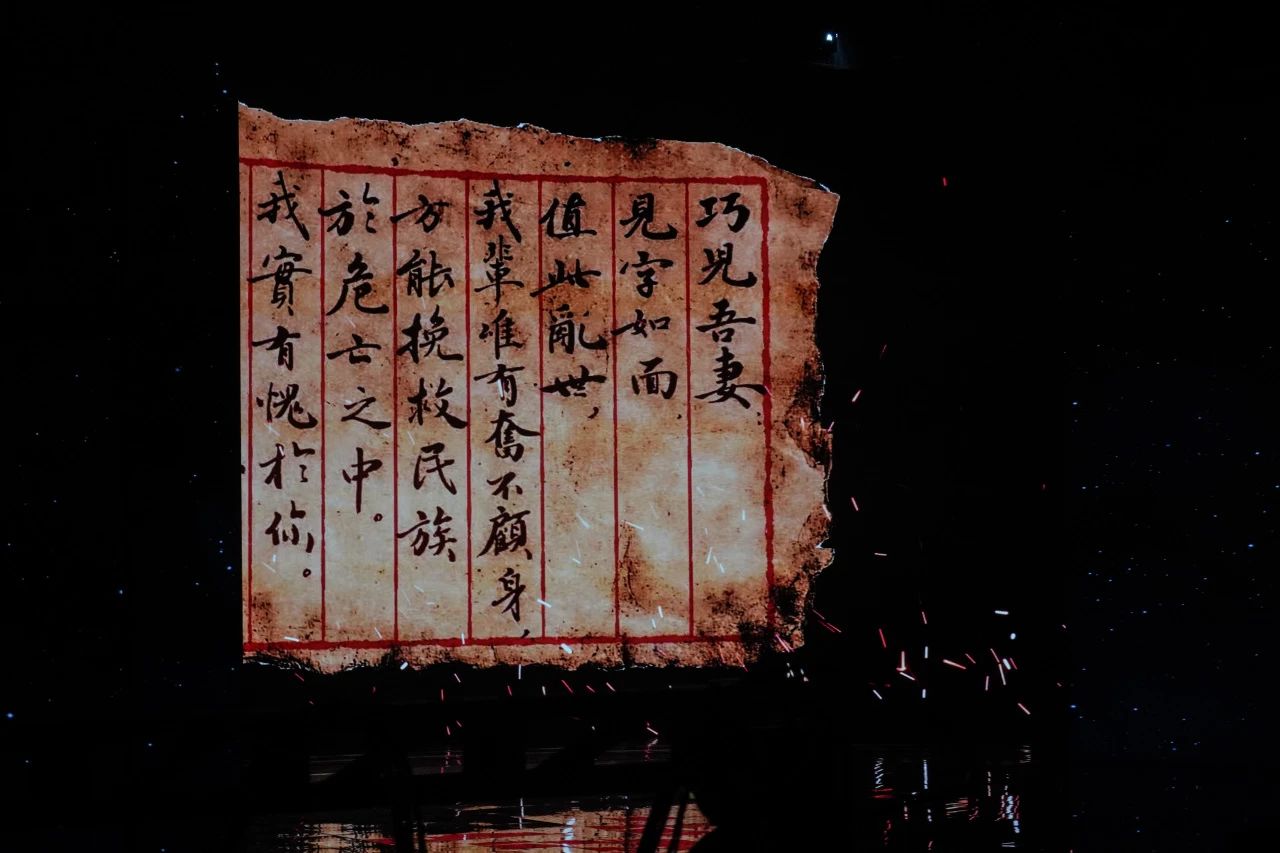 巧児吾妻.
見字如面.
值此亂世,
我輩唯有奮不顧身,
方能挽救民族
於危亡之中。
我實有愧於你。